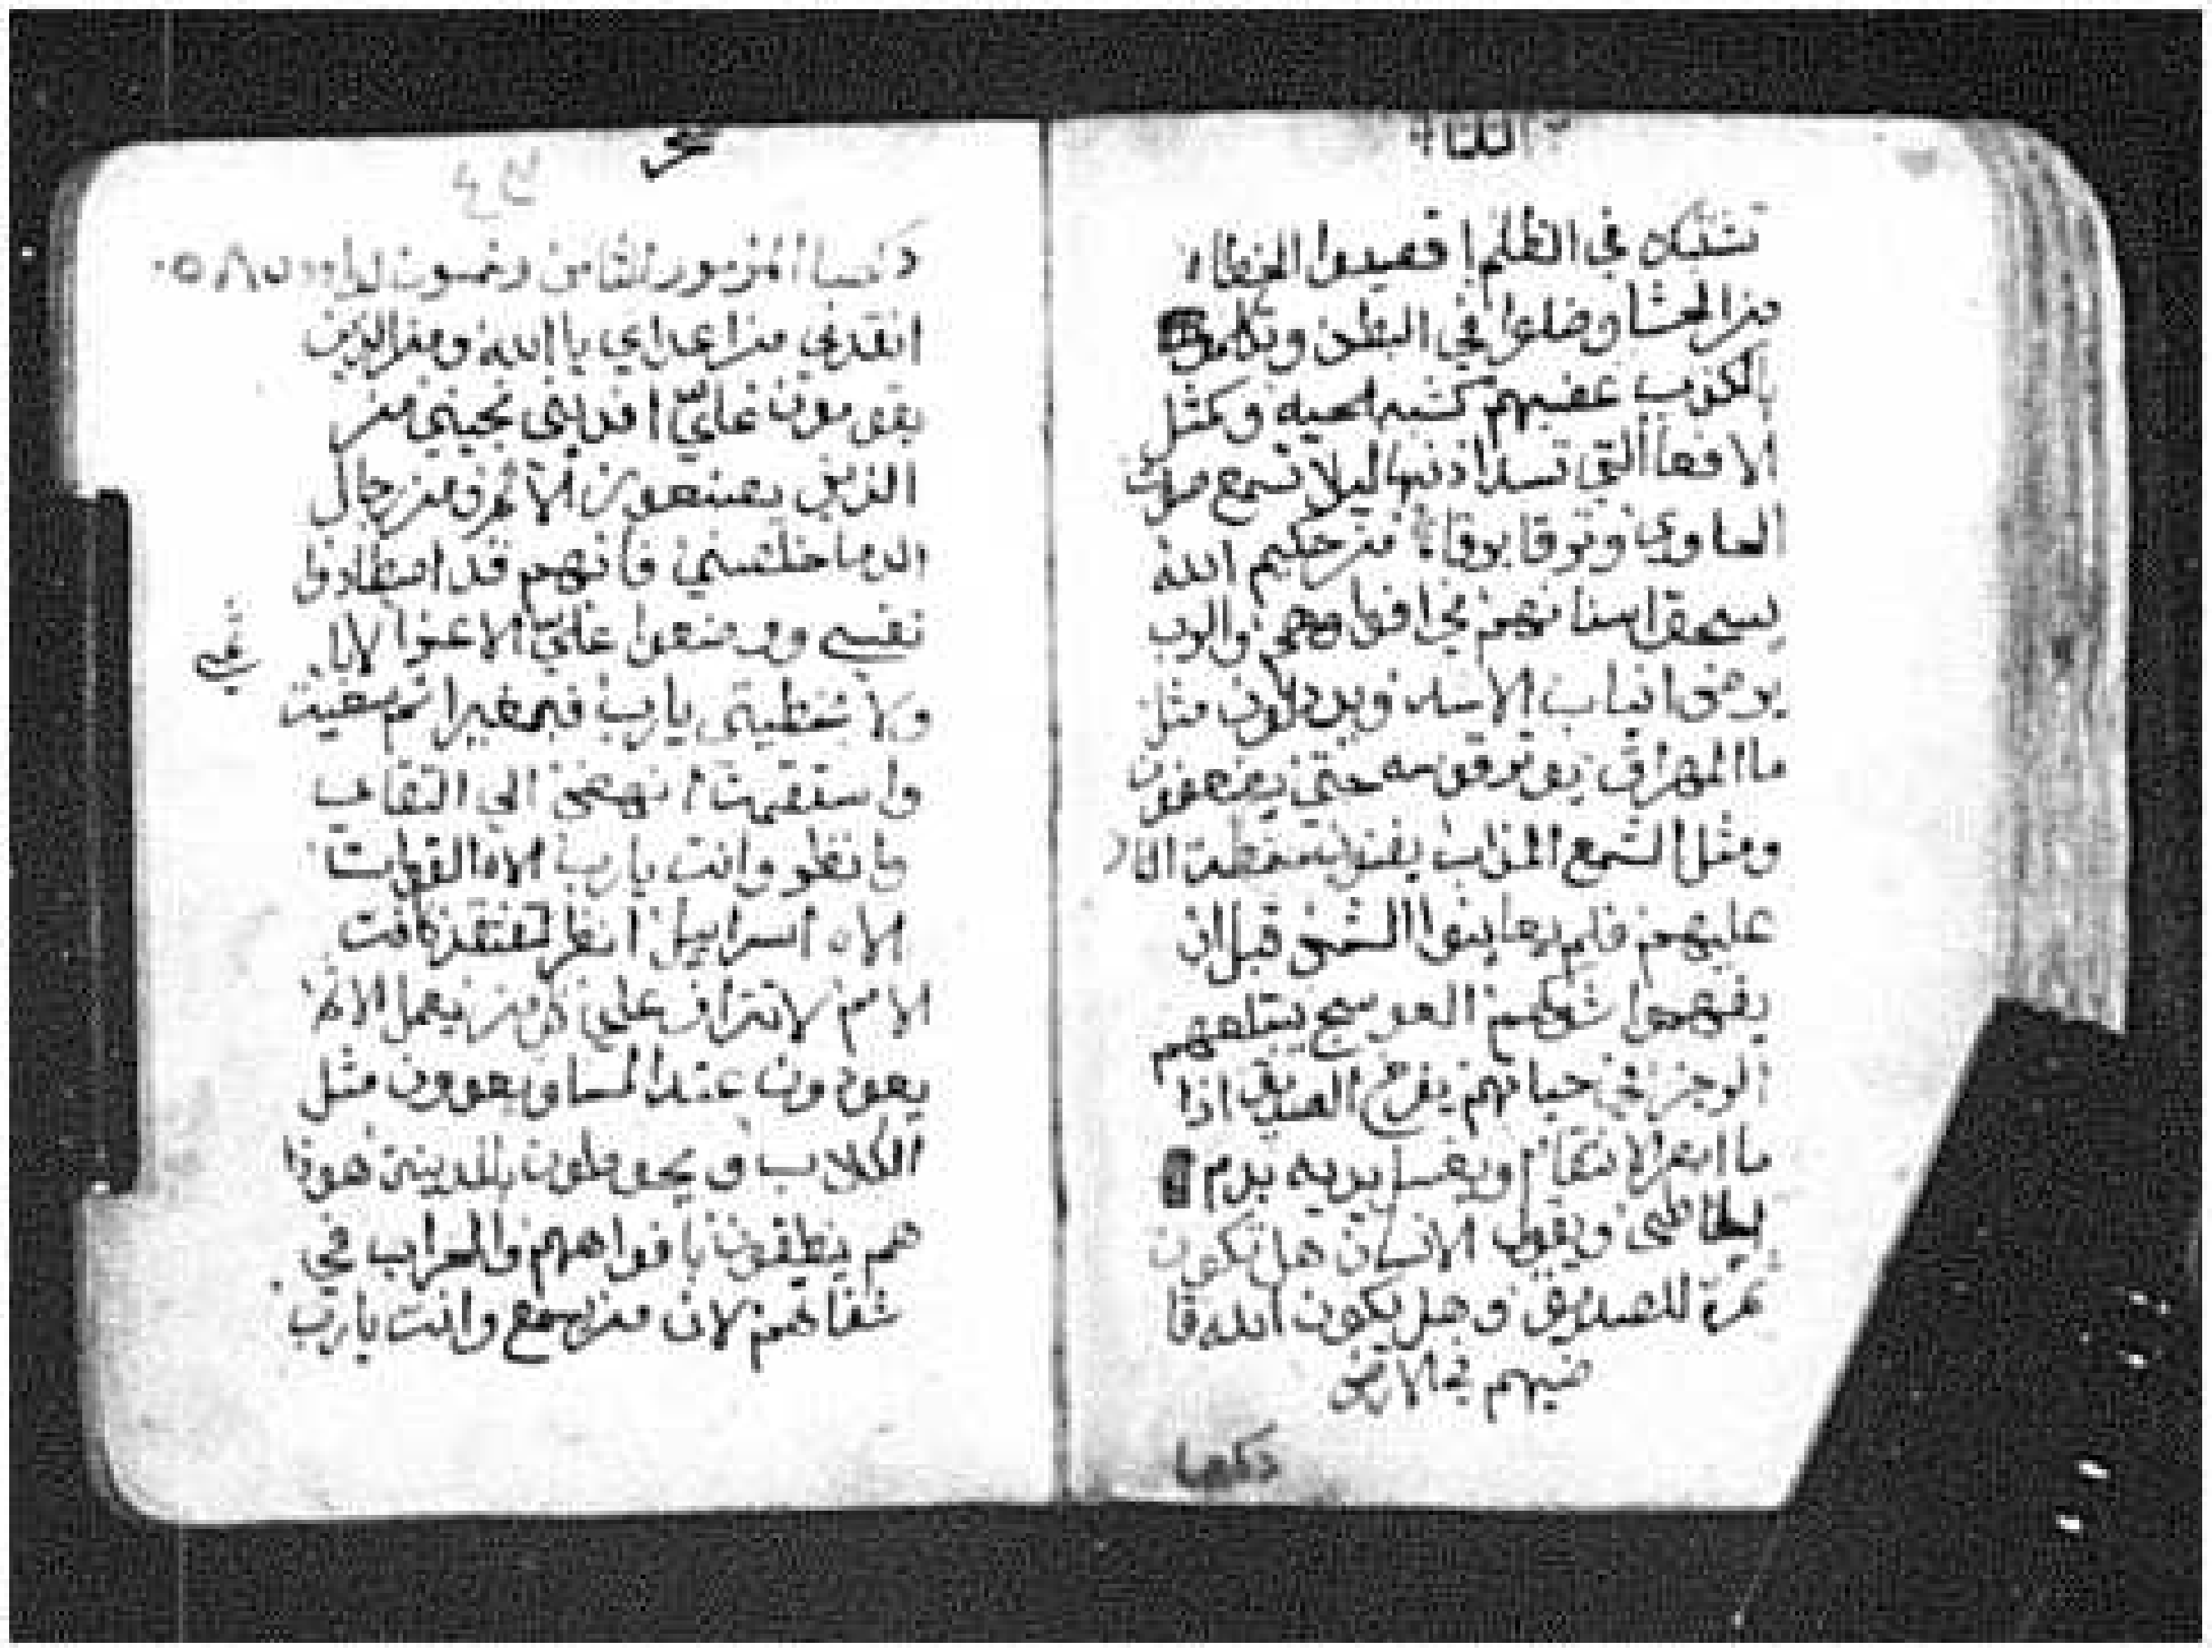 تشتبك في الظلم
من الحشا وضلوا في البطن
بالكذب غضبهم كشبه الحيه وكمثل
الافعا التي تسد اذنيها ليلا تسمع صوت
الحاوي من حكيم الله
يسحق اسنانهم في افواههم والرب
يرض انياب الاسد مثل
ما المهراق يوتر قوسه حتي يضعفون
ومثل الشمع المذاب سقطت النار
عليهم فلم يعاينوا الشمس قبل ان
يفهموا شوكهم العوسج يبتلعهم
الرجز في حياتهم يفرح الصديق اذا
ما ابصر الانتقام ويغسل يديه بدم
الخاطي ويقول الانسان هل تكون
ثمرة للصديق وهل يكون الله قا
ضيهم في الارض
المزمور الثامن وخمسون لداود ٥٨
انقذني من اعداي يا الله ومن الذين
يقومون عليّ نجيني من
الذين يصنعون الاثم ومن رجال
الدما خلصني فانهم قد اصطادوا
نفسي عليّ الاعزا لا
ولا خطيتي يارب فبغير اثم سعيت
واستقمت انهض الي التقاي
وانظر وانت يارب الاه القوات
الاه اسراييل انظر كافت
الامم لا تتراف علي كل من يعمل الاثم
يعودون عند المسا ويعوون مثل
الكلاب و يحوطون بالمدينه هوذا
هم ينطقون بافواههم والحراب في
شفاههم لان من يسمع وانت يارب